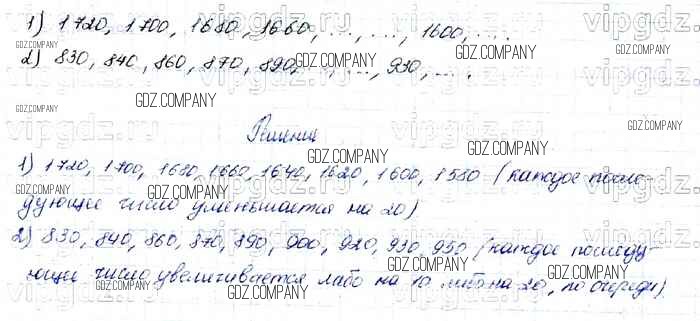 1) 1720, 1700, 1680, 1660, ..., ..., 1600, ... .
2) 830, 840, 860, 870, 890, ..., ..., 930, ... .
Решение
1) 1720, 1700, 1680, 1660, 1640, 1620, 1600, 1580 (каждое после-
дующее число уменьшается на 20)
2) 830, 840, 860, 870, 890, 900, 920, 930, 950 (каждое последу-
ющее число увеличивается либо на 10 либо на 20, по очереди).